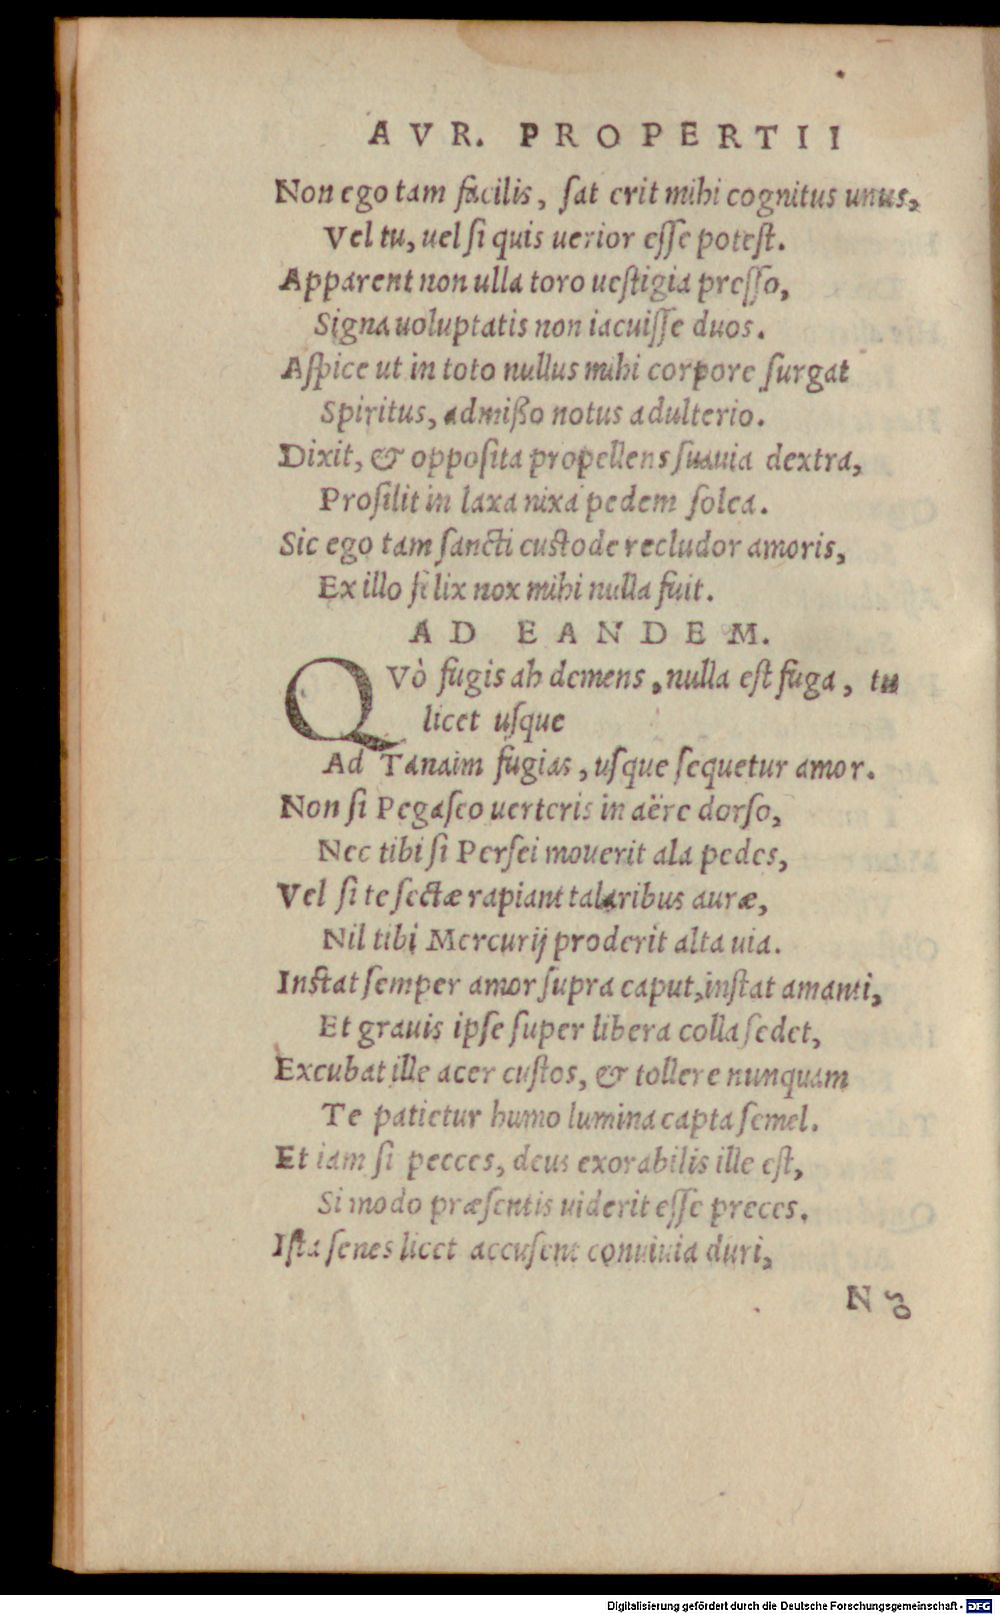 AVR. PROPERTII
Non ego tam facilis, ſat erit mihi cognitus unus,
Vel tu, uel ſi quis uerior eſſe poteſt.
Apparent non ulla toro ueſtigia preſſo,
Signa uoluptatis non iacuiſſe duos.
Aſpice ut in toto nullus mihi corpore ſurgat
Spiritus, admißo notus adulterio.
Dixit, & oppoſita propellens ſuauia dextra,
Proſilit in laxa nixa pedem ſolea.
Sic ego tam ſancti cuſtode recludor amoris,
Ex illo felix nox mihi nulla fuit.
AD EANDEM.
QVò fugis ah demens, nulla eſt fuga, tu
licet uſque
Ad Tanaim fugias, uſque ſequetur amor.
Non ſi Pegaſeo uerteris in aëre dorſo,
Nec tibi ſi Perſei mouerit ala pedes,
Vel ſi te ſectæ rapiant talaribus auræ,
Nil tibi Mercurij proderit alta uia.
Inſtat ſemper amor ſupra caput, inſtat amanti,
Et grauis ipſe ſuper libera colla ſedet,
Excubat ille acer cuſtos, & tollere nunquam
Te patietur humo lumina capta ſemel.
Et iam ſi pecces, deus exorabilis ille eſt,
Si modo præſentis uiderit eſſe preces.
Iſta ſenes licet accuſent conuiuia duri,
Nos
Digitalisierung gefördert durch die Deutsche Forschungsgemeinschaft - DFG